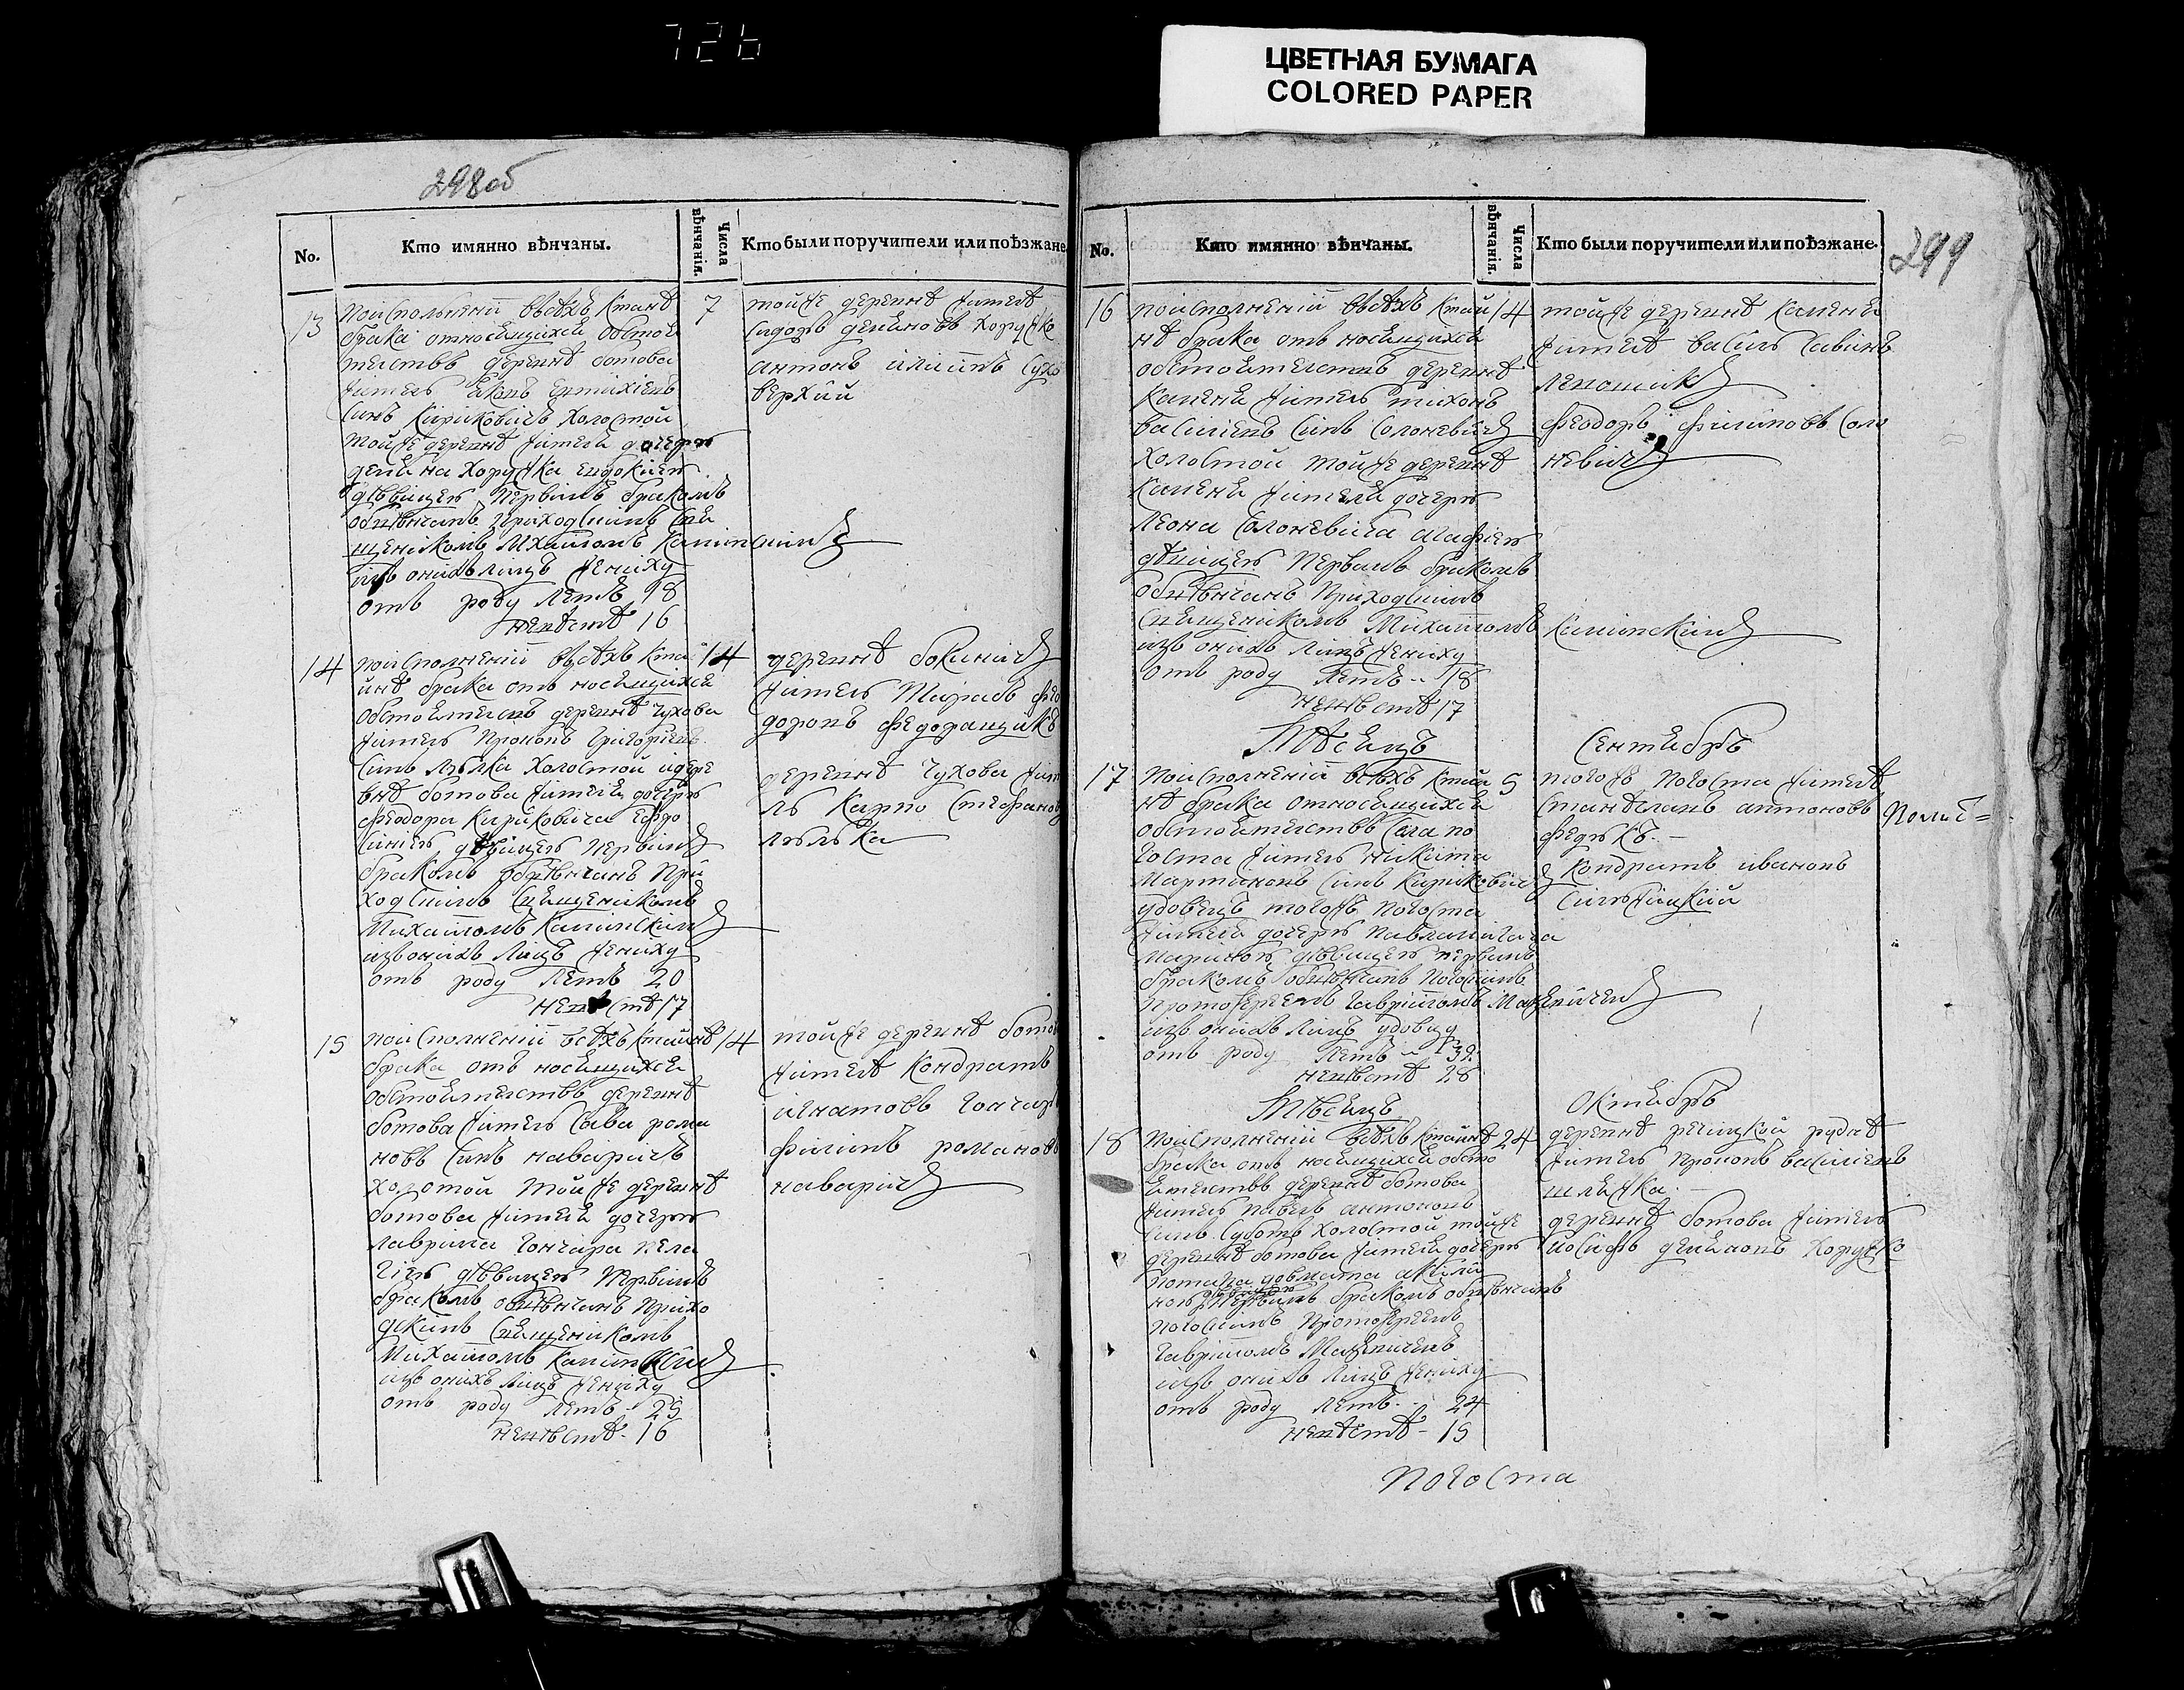 726
ЦВЕТНАЯ БУМАГА
COLORED PAPER
298об
No.
Кто имянно вѣнчаны.
Числа вѣнчанія.
Кто были поручители или поѣзжане.
13
поисполненіи всѣхъ ктаинѣ
брака относящихся обстоя
телствъ деревнѣ ботова
житель
синъ Кириковичъ холостой
тойже деревнѣ жителя дочерю
демяна хоружка евдокиею
дѣвицею первимъ бракомъ
обвѣнчанъ приходскимъ свя
щеникомъ Михаиломъ Калинскимъ
изъ онихъ лицъ жениху
отъ роду летъ 18
невѣстѣ 16
7
тойже деревнѣ жителѣ
сидоръ демяновъ хоружко
антонъ сухо
верхий
14
поисполненіи всѣхъ кта
инѣ брака отъ носящихся
обстоятелствъ деревнѣ чухова
житель прокопъ григориевъ
синъ люлка холостой идере
внѣ ботова жителя дочерю
феодора Кириковича Ефро
синию дѣвицею первимъ
бракомъ обвѣнчанъ при
ходскимъ священикомъ
Михаиломъ Калинскимъ
изъ онихъ лицъ жениху
отъ роду летъ 20
невѣстѣ 17
14
деревнѣ
житель Тарасъ фео
доровъ федоращикъ
деревнѣ Чухова жите
ль Карпо Стефановъ
люлька
15
поисполненіи всѣхъ ктаинѣ
брака отъ носящихся
обстоятелствъ деревнѣ
ботова житель Сава рома
новъ синъ наваричъ
холостой тойже деревнѣ
ботова жителя дочерю
лаврина гончара пела
гіею дѣвицею первимъ
бракомъ обвѣнчанъ прихо
дскимъ священикомъ
Михаиломъ Калинскимъ
изъ онихъ лицъ жениху
отъ роду летъ 25
невѣстѣ 16
14
тойже деревнѣ ботова
жителѣ Кондратъ
игнатовъ гончаръ
филипъ романовъ
наваричъ
299
No.
Кто имянно вѣнчаны.
Числа вѣнчанія.
Кто были поручители или поѣзжане.
16
поисполненіи всѣхъ ктаи
нѣ брака отъ носящихся
обстоятелствъ деревнѣ
Каменя житель тихонъ
василиевъ синъ Солоневичъ
холостой тойже деревнѣ
Каменя жителя дочерю
леона Солоневича агафиею
дѣвицею первимъ бракомъ
обвѣнчанъ приходскимъ
священикомъ Михаиломъ Калинскимъ
изъ онихъ лицъ жениху
отъ роду летъ 18
невѣстѣ 17
14
тойже деревнѣ Каменя
жителѣ василь Савинъ
феодоръ филиповъ Соло
невичъ
Мѣсяцъ
Сентябръ
17
поисполненіи всѣхъ ктаи
нѣ брака относящихся
обстоятелствъ Села по
госта житель никита
Мартиновъ синъ Кириковичъ
удовецъ тогожъ погоста
жителя дочерю
дѣвицею первимъ
бракомъ обвѣнчанъ погоскимъ
протоіереемъ гавриломъ
изъ онихъ лицъ удовцу
отъ роду летъ 39
невѣстѣ 28
5
тогожъ погоста жителѣ
Станѣславъ антоновъ
Кондратъ ивановъ
Мѣсяцъ
Октябръ
18
поисполненіи всѣхъ ктаинѣ
брака отъ носящихся обсто
ятелствъ деревнѣ ботова
житель павелъ антоновъ
синъ холостой тойже
деревнѣ ботова жителя дочерю
потапа довмата
первимъ бракомъ обвѣнчанъ
погоскимъ протоіереемъ
гавриломъ
изъ онихъ лицъ жениху
отъ роду летъ 24
невѣстѣ 19
24
деревнѣ рудне
житель прокопъ василиевъ
деревнѣ ботова житель
иосифъ демяновъ хоружко
погоста